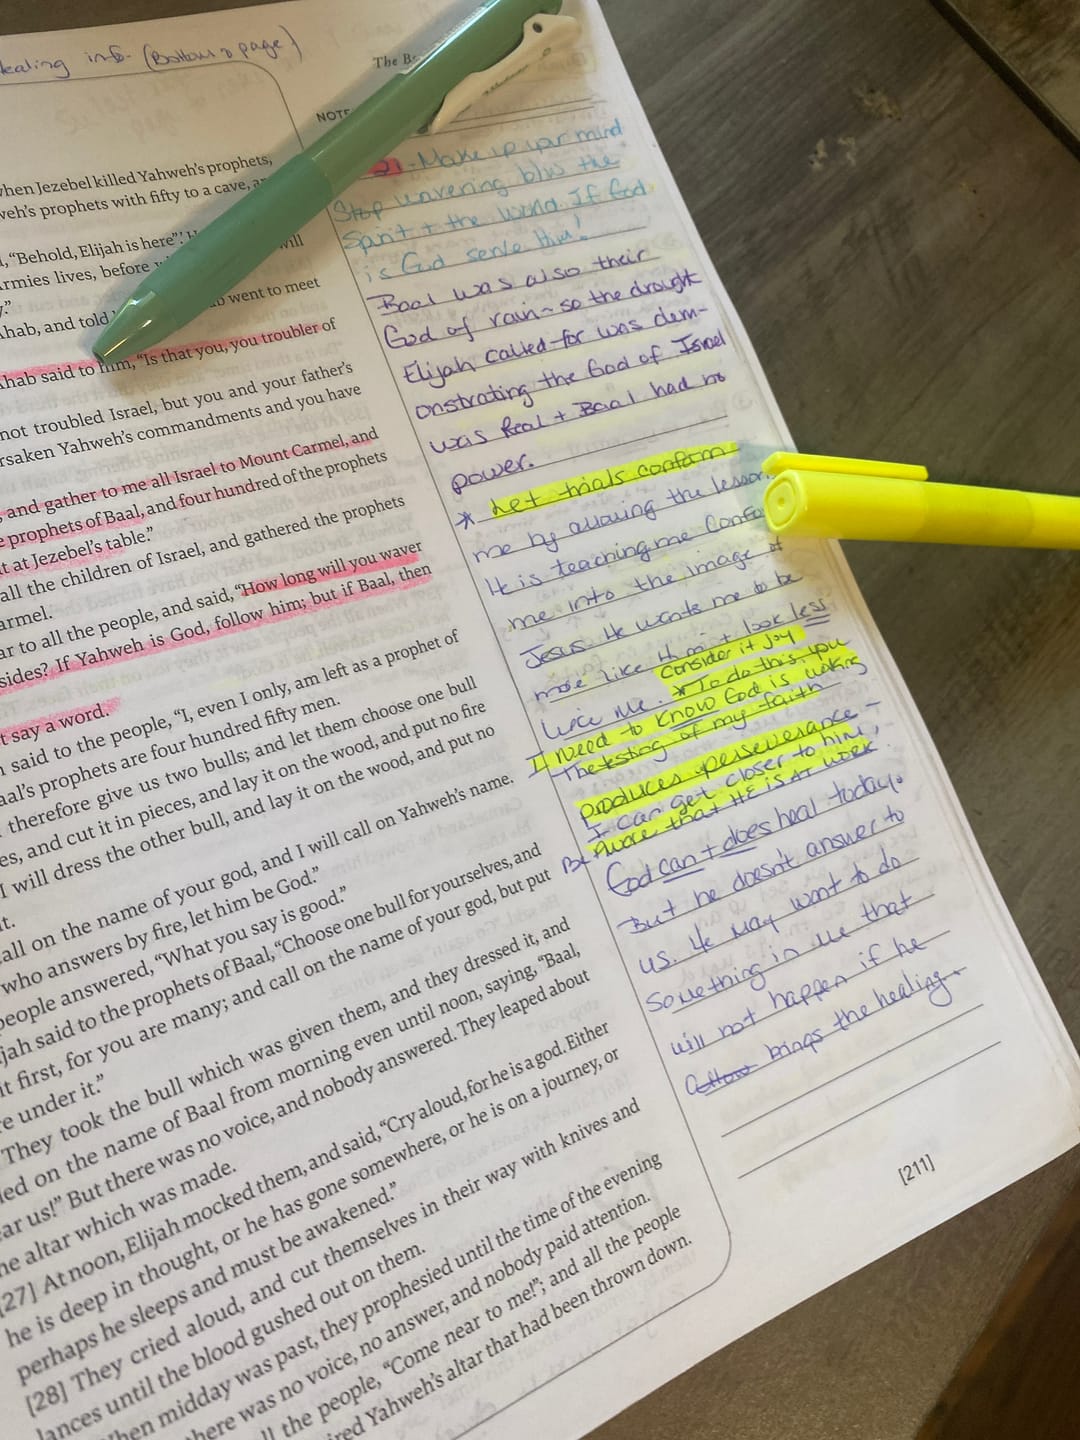 ealing info- (Bottom of page)
The B
NOTE
when Jezebel killed Yahweh's prophets,
weh's prophets with fifty to a cave,
, “Behold, Elijah is here”.’ will
Armies lives, before
y.”
Ahab, and told went to meet
Ahab said to him, “Is that you, you troubler of
not troubled Israel, but you and your father's
rsaken Yahweh's commandments and you have
, and gather to me all Israel to Mount Carmel, and
e prophets of Baal, and four hundred of the prophets
t at Jezebel's table.”
all the children of Israel, and gathered the prophets
armel.
ar to all the people, and said, “How long will you waver
sides? If Yahweh is God, follow him; but if Baal, then
t say a word.
said to the people, “I, even I only, am left as a prophet of
aal's prophets are four hundred fifty men.
therefore give us two bulls; and let them choose one bull
es, and cut it in pieces, and lay it on the wood, and put no fire
I will dress the other bull, and lay it on the wood, and put no
it.
call on the name of your god, and I will call on Yahweh's name.
who answers by fire, let him be God.”
people answered, “What you say is good.”
ijah said to the prophets of Baal, “Choose one bull for yourselves, and
it first, for you are many; and call on the name of your god, but put
re under it.”
They took the bull which was given them, and they dressed it, and
led on the name of Baal from morning even until noon, saying, “Baal,
ear us!” But there was no voice, and nobody answered. They leaped about
he altar which was made.
[27] At noon, Elijah mocked them, and said, “Cry aloud, for he is a god. Either
he is deep in thought, or he has gone somewhere, or he is on a journey, or
perhaps he sleeps and must be awakened.”
[28] They cried aloud, and cut themselves in their way with knives and
lances until the blood gushed out on them.
When midday was past, they prophesied until the time of the evening
there was no voice, no answer, and nobody paid attention.
ll the people, “Come near to me!”; and all the people
ired Yahweh's altar that had been thrown down.
21 - Make up your mind
Stop wavering b/w the
Spirit + the world. If God
is God serve Him!
Baal was also their
God of rain - so the drought
Elijah called for was dem-
onstrating the God of Israel
was Real + Baal had no
power.
* Let trials conform
me by allowing the lesson
He is teaching me Confo
me into the image of
Jesus. He wants me to be
more like Him + look less
like me.
Consider it Joy
* To do this, you
I need to know God is working
The testing of my faith
produces perseverance -
I can get closer to him,
Be Aware that HE is AT work.
God can + does heal today.
But he doesn't answer to
us. He may want to do
Something in me that
will not happen if he
allow brings the healing.
[211]